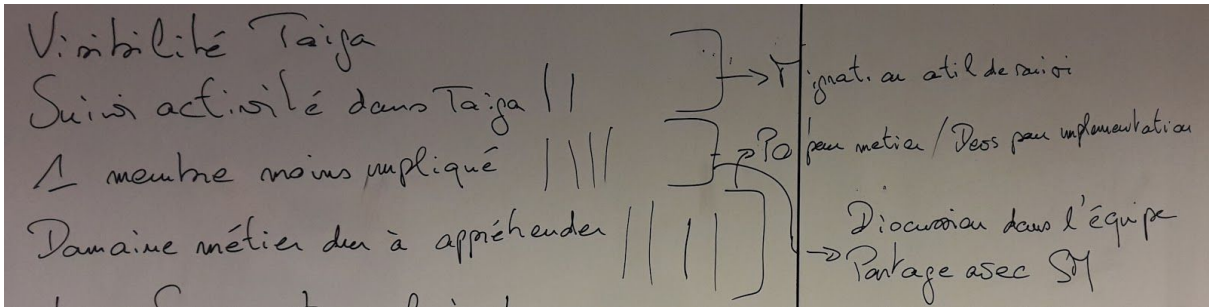 Visibilité Taiga
Suivi activité dans Taiga ||
1 membre moins impliqué ||||
Domaine métier dur à appréhender ||||
outil de suivi
→ Po pour métier / Devs pour implémentation
Discussion dans l'équipe
→ Partage avec SM